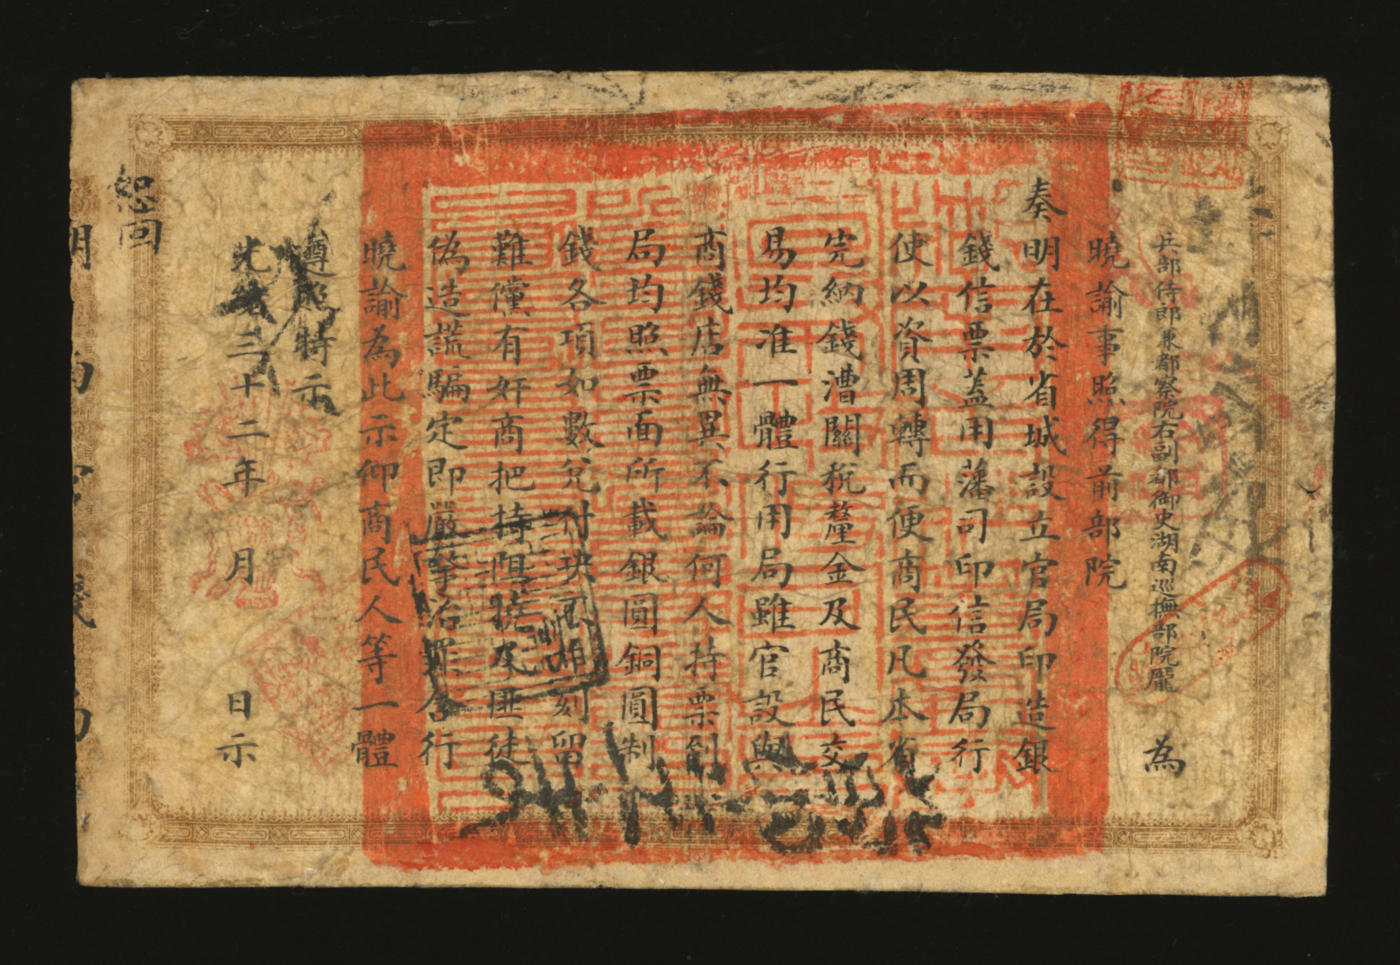 兵部侍郎兼都察院右副都御史湖南巡撫部院龐 為
曉諭事照得前部院
奏明在於省城設立官局印造銀
錢信票蓋用藩司印信發局行
使以資周轉而便商民凡本省
完納錢漕關稅釐金及商民交
易均准一體行用局雖官設與
商錢店無異不論何人持票到
局均照票面所載銀圓銅圓制
錢各項如數兌付決不
難僅有奸商把持阻撓及匪徒
偽造謊騙定即嚴拿治罪合行
曉諭為此示仰商民人等一體
遵照特示
光緒三十二年 月 日示
恕回